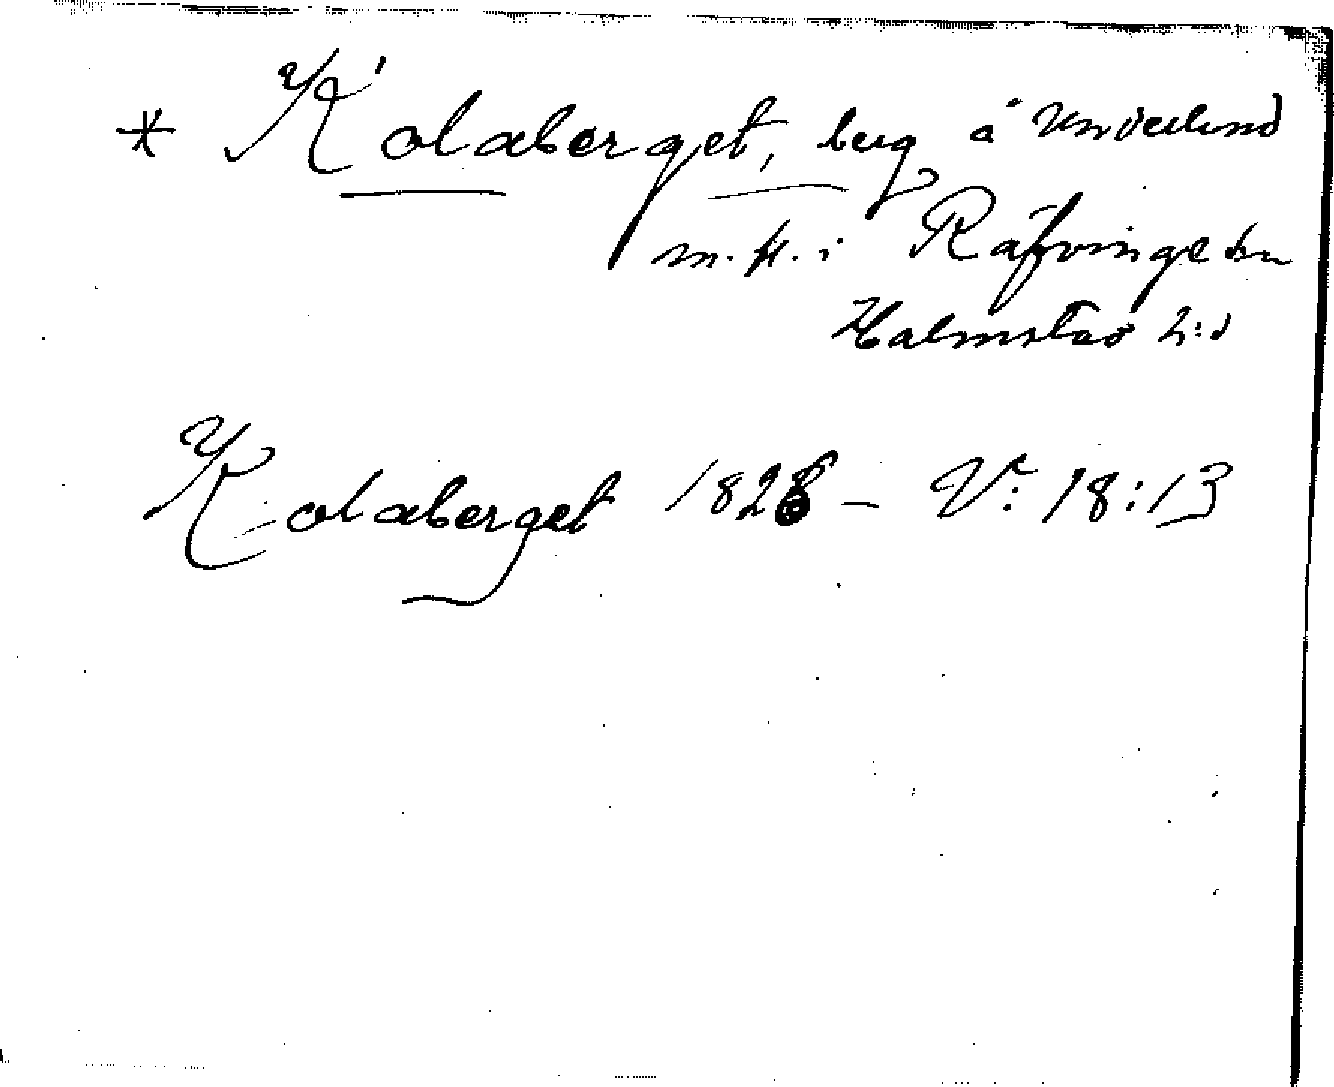 * Kolaberget, berg å Underlund
m.fl. i Räfvinge sn
Halmstad h:d
Kolaberget 1828 – V: 18:13